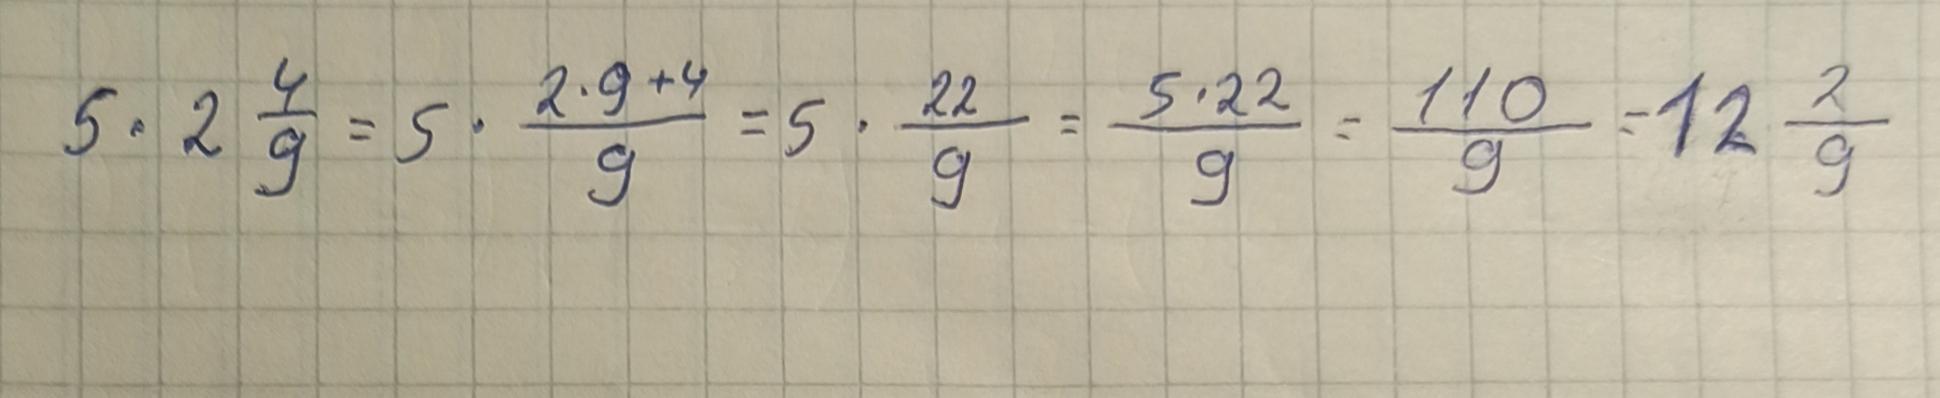 5 · 2 4/9 = 5 · (2·9+4)/9 = 5 · 22/9 = (5·22)/9 = 110/9 = 12 2/9